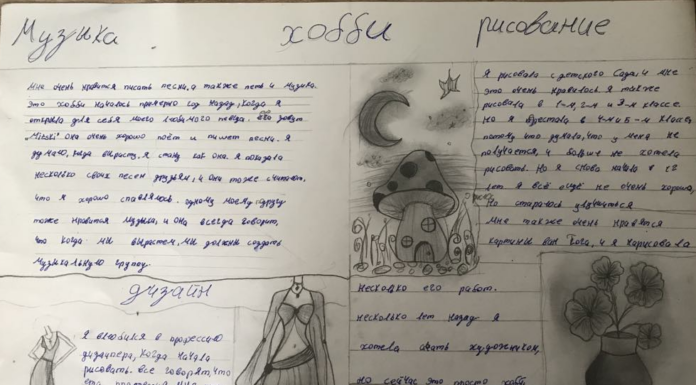 Музыка хобби рисование
Мне очень нравится писать песни, а также петь и музыка.
Это хобби началось примерно год назад, когда я
открыла для себя моего любимого певца. его зовут
"Mitski" она очень хорошо поёт и пишет песни. Я
думаю, когда вырасту, я стану как она. Я показала
несколько своих песен друзьям, и они тоже считают,
что я хорошо справляюсь. одному моему другу
тоже нравится музыка, и она всегда говорит,
что когда мы вырастем, мы должны создать
музыкальную группу.
Я рисовала с детского сада, и мне
это очень нравилось я также
рисовала в 1-м, 2-м и 3-м классе.
Но я перестала в 4-м и 5-м классе
потому что думала, что у меня не
получается, и больше не хотела
рисовать. Но я снова начала в
лет Я всё ещё не очень хороша,
Но стараюсь улучшиться
Мне также очень нравятся
картины Ван Гога, и я нарисовала
несколько его работ.
несколько лет назад я
хотела стать художником,
но сейчас это просто хобби
дизайн
Я влюбился в профессию
дизайнера, когда начала
рисовать. все говорят, что